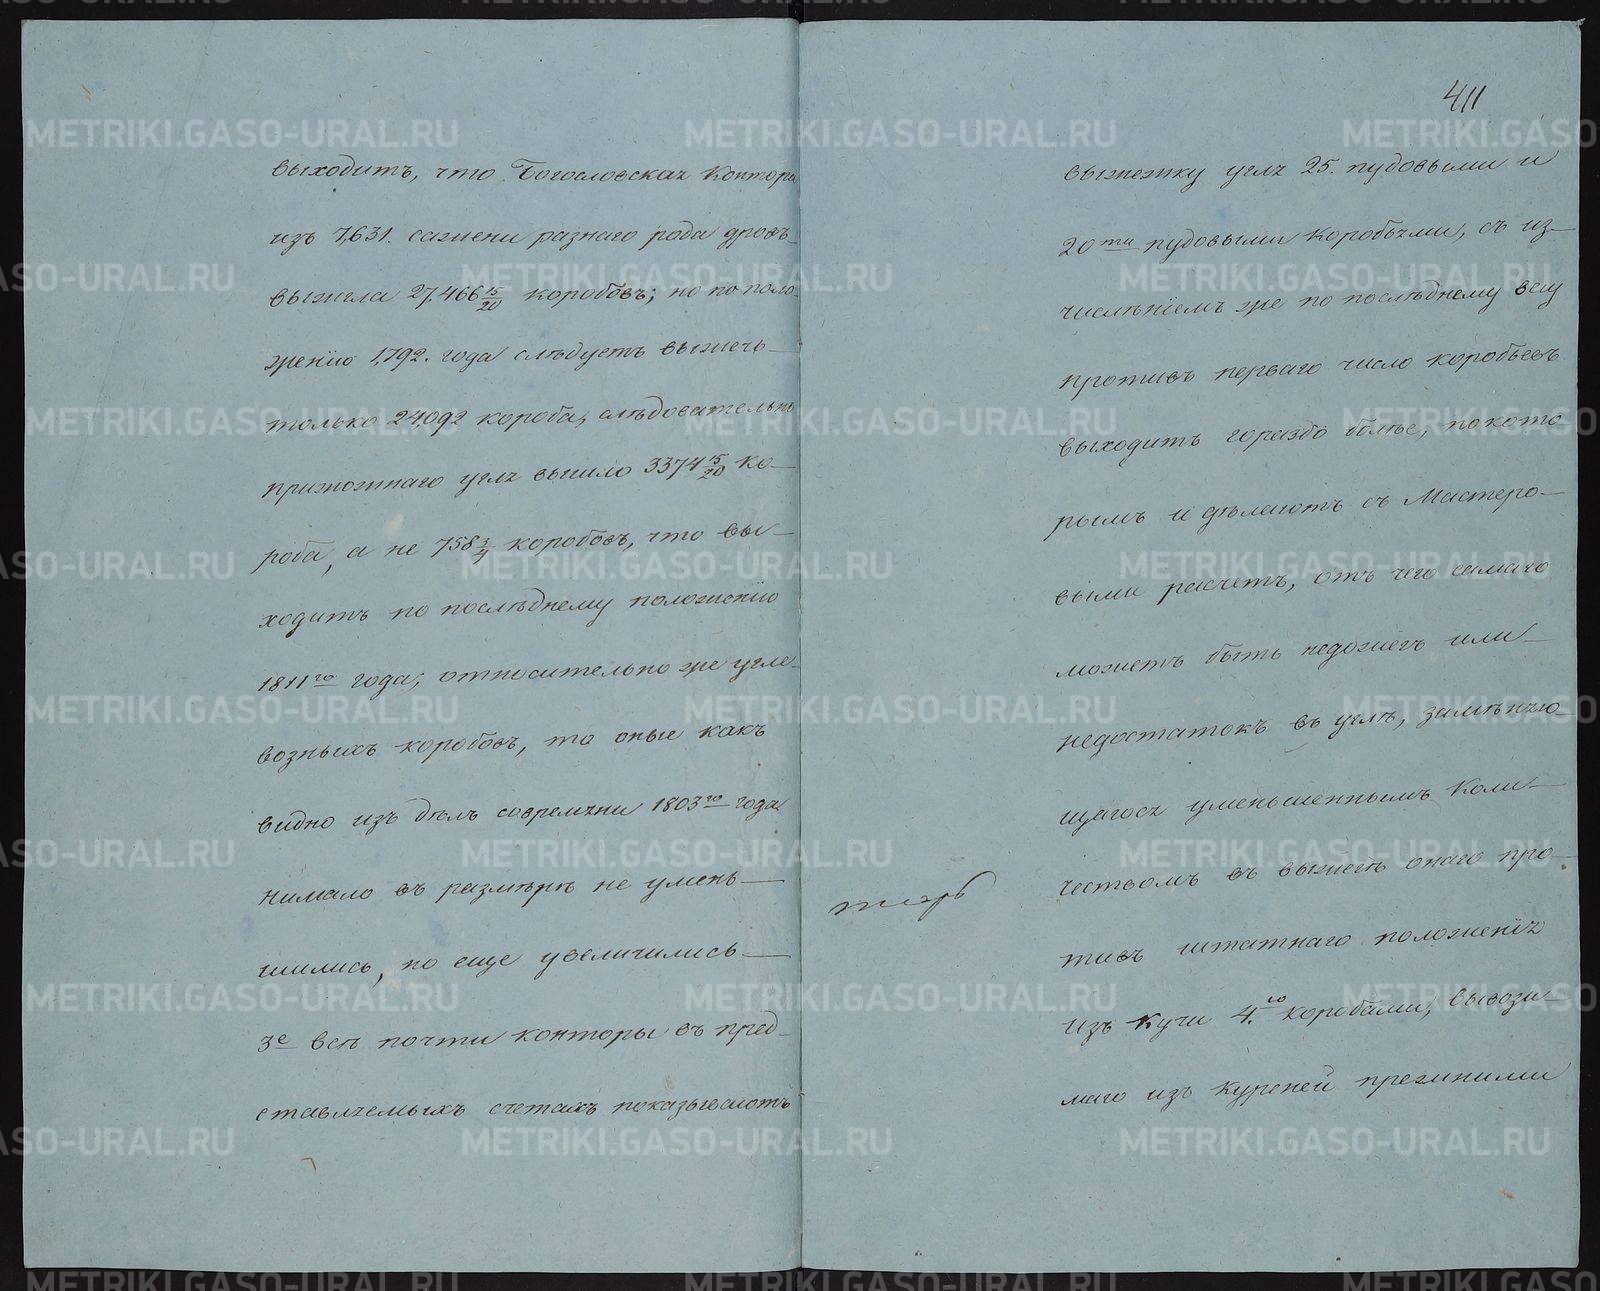 выходитъ, что Богословская Контора
изъ 7,631. сажени разнаго рода дровъ
выжгла 27,466 15/20 коробовъ; но по поло-
жренію 1,792. года слѣдуетъ выжечь
только 24,092 короба, слѣдовательно
прижожнаго угля вышло 3374 15/20 ко-
роба, а не 758 3/4 коробовъ, что вы-
ходитъ по послѣднему положенію
1811го года; относительно же угле-
возныхъ коробовъ, то оные какъ
видно изъ дѣлъ современи 1803го года
нимало въ размѣрѣ не умень-
шились, но еще увеличились
3е всѣ почти конторы въ пред-
ставляемыхъ счетахъ показываютъ
411
выжежку угля 25. пудовыми и
20ти пудовыми коробьями, съ из-
численіемъ же по послѣднему весу
противъ перваго число коробьевъ
выходитъ гораздо болѣе, по кото
рымъ и дѣлаютъ съ Мастеро-
выми расчетъ, отъ чего самаго
можетъ быть недожегъ или
недостатокъ въ углѣ, замѣняю-
щагося уменьшеннымъ коли-
чествомъ въ выжегѣ онаго про-
тивъ штатнаго положенія
изъ кучи 4.го коробами, вывози-
маго изъ куреней прежними
METRIKI.GASO-URAL.RU